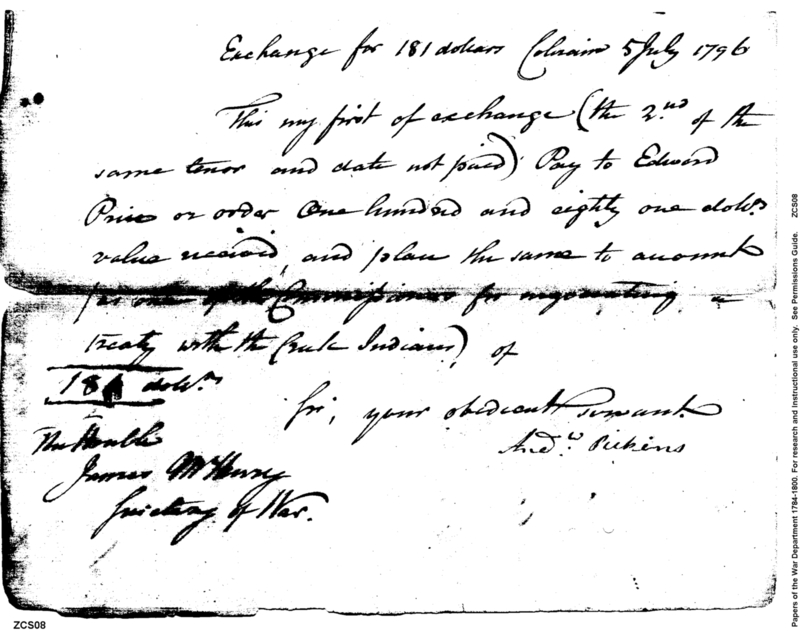 Exchange for 181 dollars Colerain 5 July 1796
This my first of exchange (the 2nd of the
same tenor and date not paid) Pay to Edward
Price or order One hundred and eighty one dolrs
value received, and place the same to account
(as one of the Commissioners for negociating a
treaty with the Creek Indians) of
181 dolrs
Sir, your obedient servant
Andw Pickens
The Honble
James McHenry
Secretary of War.
ZCS08
Papers of the War Department 1784-1800. For research and instructional use only. See Permissions Guide. ZCS08